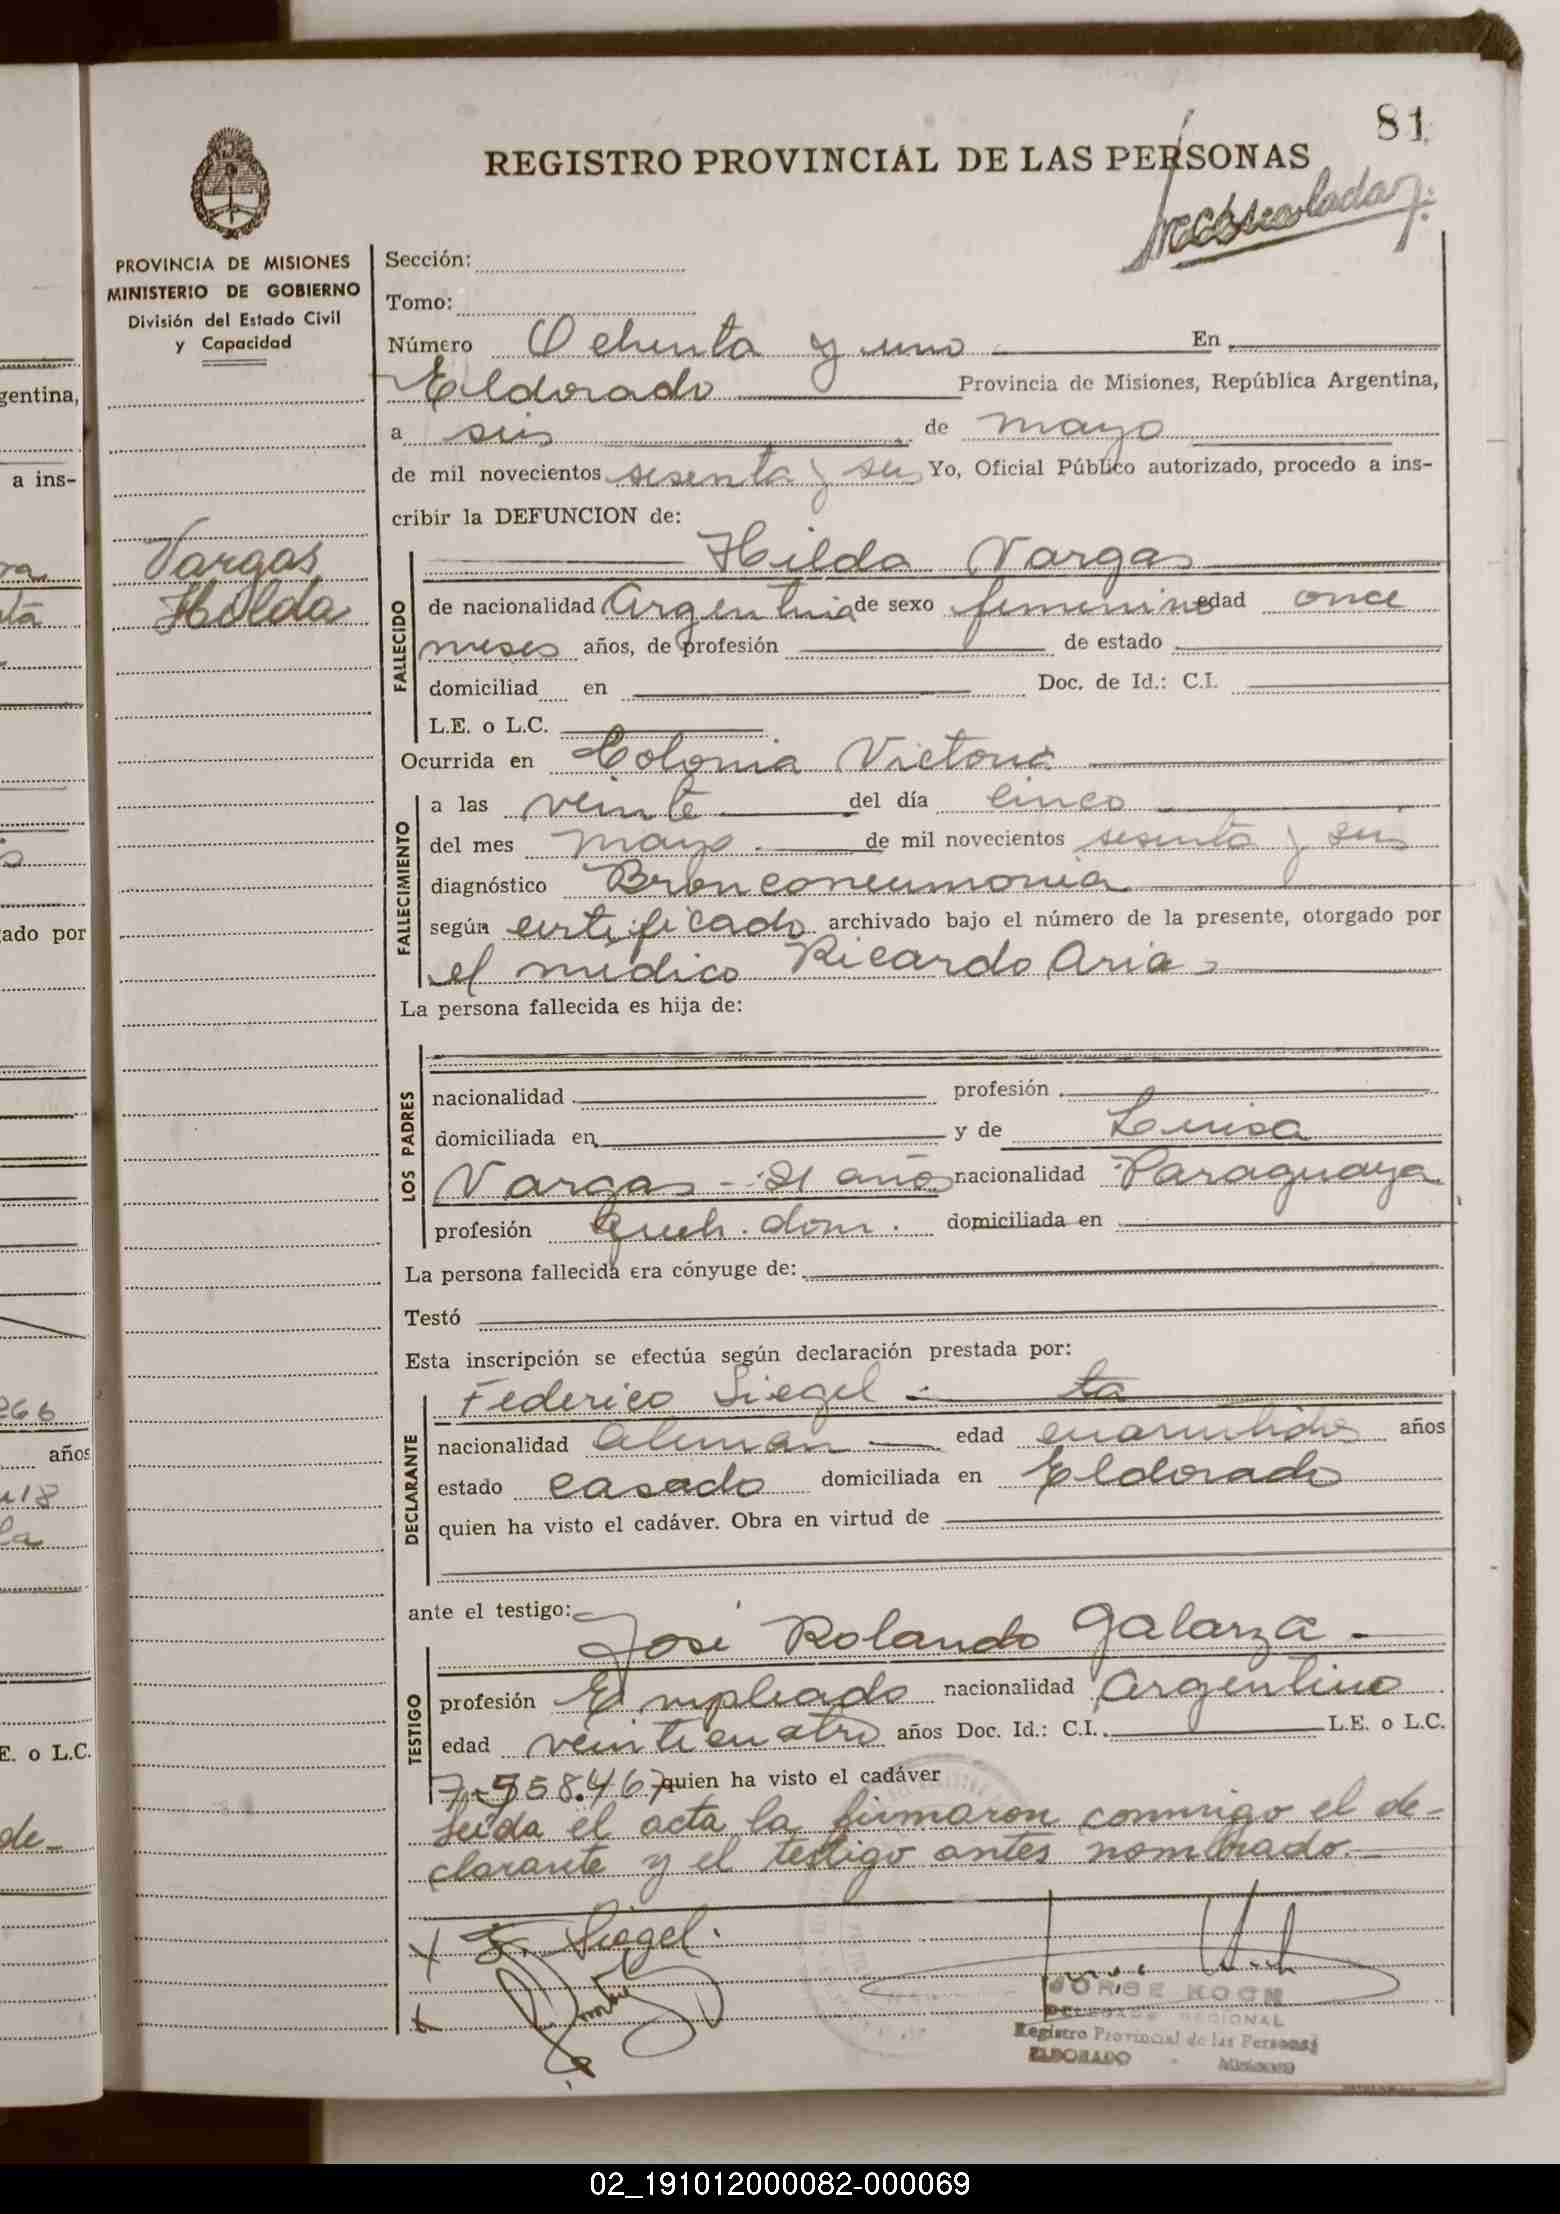 81
REGISTRO PROVINCIAL DE LAS PERSONAS
PROVINCIA DE MISIONES
MINISTERIO DE GOBIERNO
División del Estado Civil
y Capacidad
Vargas
Hilda
Sección:
Tomo:
Número Ochenta y uno En
Eldorado Provincia de Misiones, República Argentina,
a seis de mayo
de mil novecientos sesenta y seis Yo, Oficial Público autorizado, procedo a ins-
cribir la DEFUNCION de:
Hilda Vargas
FALLECIDO
de nacionalidad Argentina de sexo femenino edad once
meses años, de profesión de estado
domiciliad en Doc. de Id.: C.I.
L.E. o L.C.
Ocurrida en Colonia Victoria
FALLECIMIENTO
a las veinte del día cinco
del mes mayo de mil novecientos sesenta y seis
diagnóstico Bronconeumonia
según certificado archivado bajo el número de la presente, otorgado por
el médico Ricardo Arias
La persona fallecida es hija de:
LOS PADRES
nacionalidad profesión
domiciliada en y de Luisa
Vargas - 21 años nacionalidad Paraguaya
profesión queh. dom. domiciliada en
La persona fallecida era cónyuge de:
Testó
Esta inscripción se efectúa según declaración prestada por:
DECLARANTE
Federico Siegel ta
nacionalidad aleman edad cuarentidos años
estado casado domiciliada en Eldorado
quien ha visto el cadáver. Obra en virtud de
ante el testigo:
José Rolando Galarza -
TESTIGO
profesión Empleado nacionalidad Argentino
edad veinticuatro años Doc. Id.: C.I. L.E. o L.C.
7.558.467 quien ha visto el cadáver
Leida el acta la firmaron conmigo el de-
clarante y el testigo antes nombrado.
F. Siegel.
JORGE KOCH
DELEGADO REGIONAL
Registro Provincial de las Personas
ELDORADO - Misiones
gentina,
a ins-
ado por
266
años
E. o L.C.
de-
02_191012000082-000069